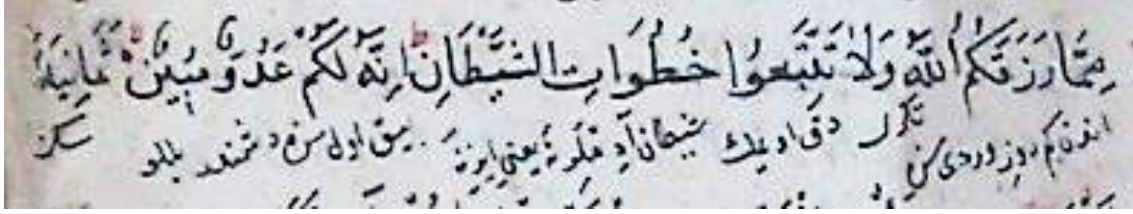 مِمَّا رَزَقَكُمُ اللّٰهُ وَلَا تَتَّبِعُوا خُطُوَاتِ الشَّيْطَانِ اِنَّهُ لَكُمْ عَدُوٌّ مُبِينٌ ثَمَانِيَةَ
اندن كم وردى تكرى دقى اويمك شيطان يعنى ايزينه بيق اول سزه دشمندر بللو سكز